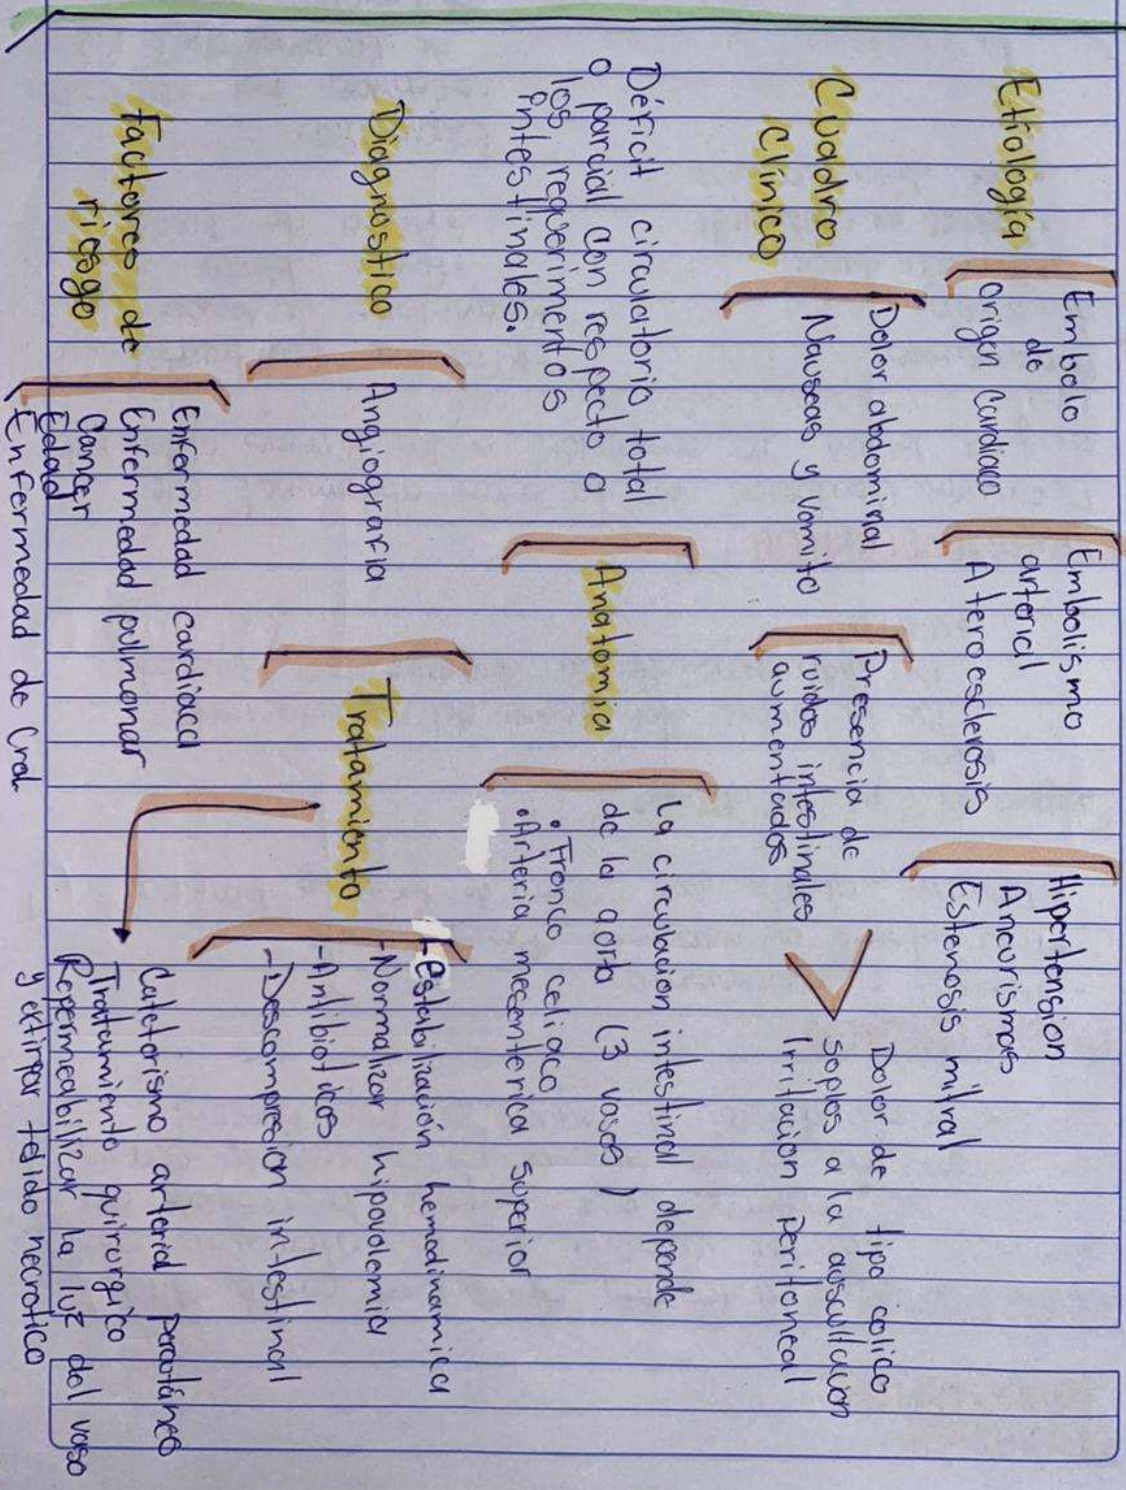 Etiología
Embolo
de
origen Cardiaco
Embolismo
arterial
Ateroesclerosis
Hipertension
Aneurismas
Estenosis mitral
Cuadro
Clínico
Dolor abdominal
Nauseas y vomito
Presencia de
ruidos intestinales
aumentados
Dolor de tipo colico
soplos a la auscultacion
Irritacion Peritoneal
Déficit circulatorio total
o parcial con respecto a
los requerimentos
intestinales.
Anatomia
La circulacion intestinal depende
de la aorta (3 vasos)
• Tronco celiaco
• Arteria mesenterica superior
Diagnostico
Angiografia
Tratamiento
-Estabilización hemodinamica
-Normalizar hipovolemia
-Antibioticos
-Descompresion intestinal
Factores de
riesgo
Enfermedad cardiaca
Enfermedad pulmonar
Cancer
Edad
Enfermedad de Crol
Cateterismo arterial Percutáneo
Tratamiento quirurgico
Repermeabilizar la luz del vaso
y extirpar tejido necrotico